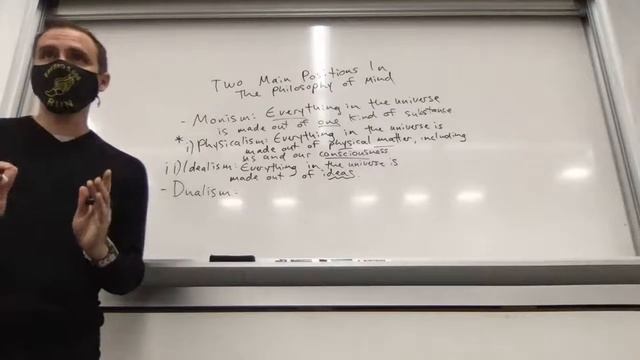 Two Main Positions In
The Philosophy of Mind
- Monism: Everything in the universe
is made out of one kind of substance
* i) Physicalism: Everything in the universe is
made out of physical matter, including
us and our consciousness
ii) Idealism: Everything in the universe is
made out of ideas.
- Dualism:
RUN